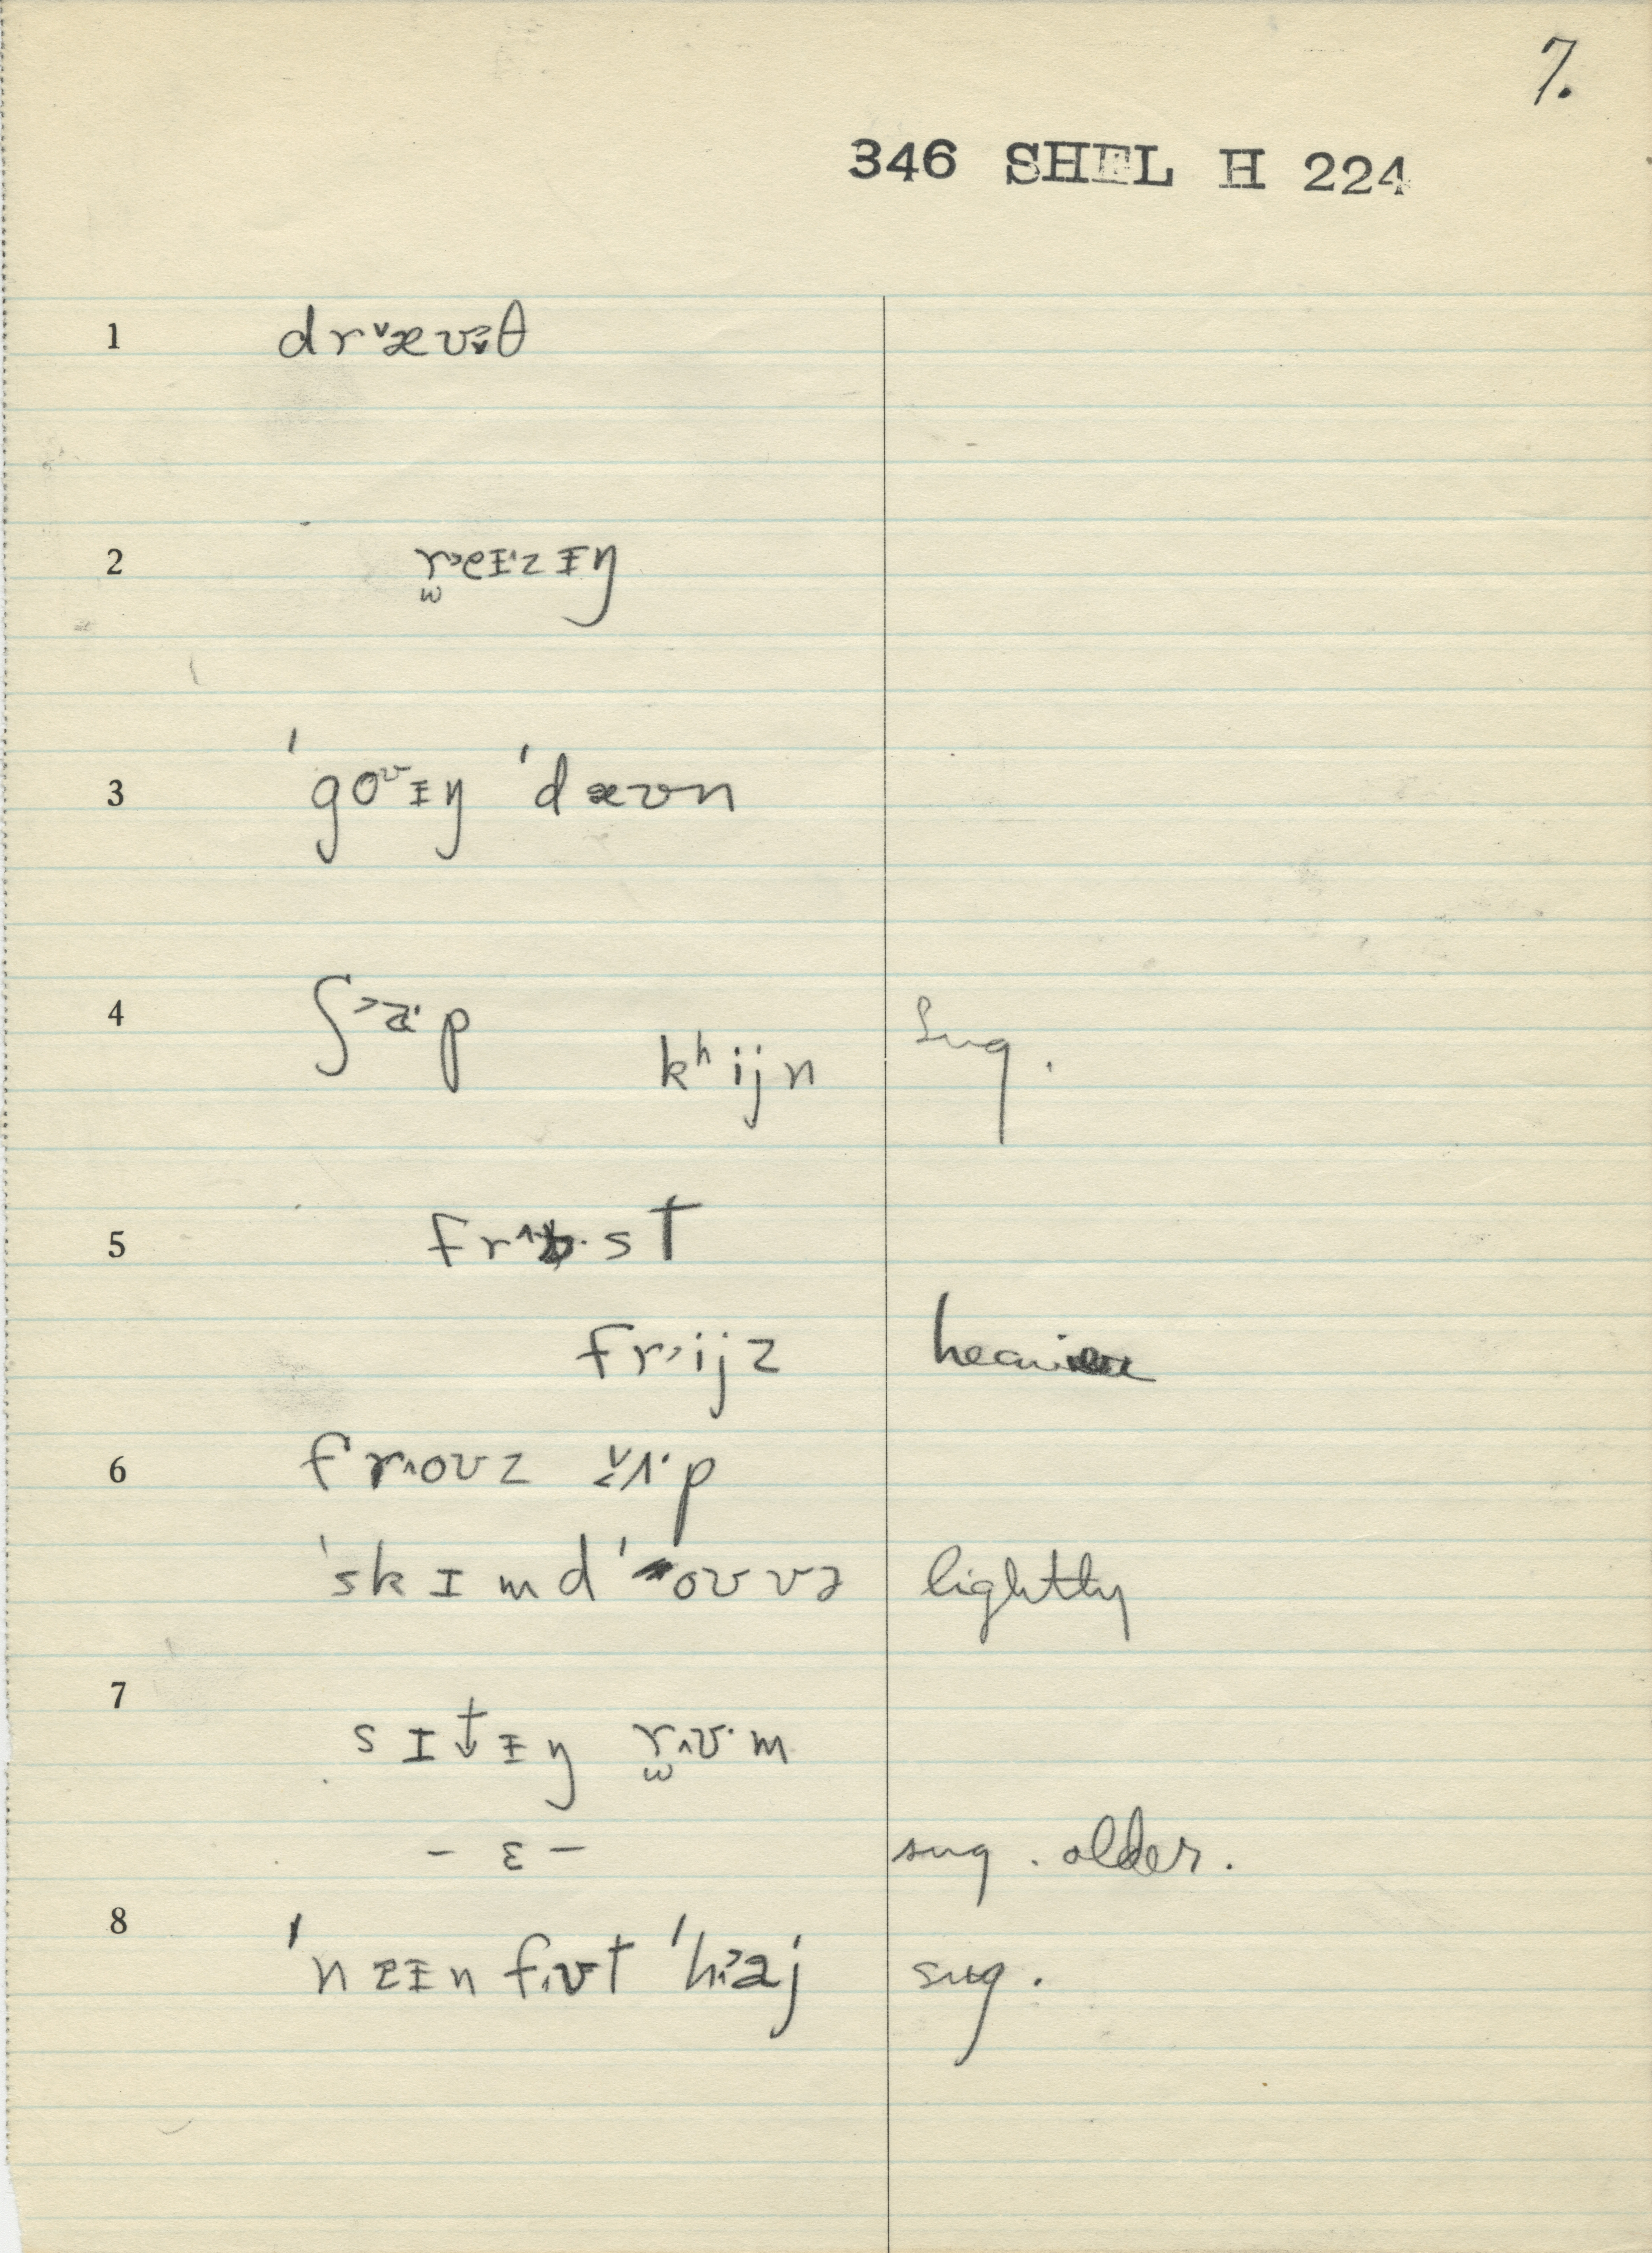 7.
346 SHEL H 224
1 drˇæʊ̬θ
2 r̫˃eɪ˙zɨŋ
3 ˈgoᶷɨŋ ˈdæʊn
4 ʃ˃a˙p
kʰijn sug.
5 fr˄ɒ˙st
fr˃ijz heavier
6 fr˄oʊz ʌ˙p
ˈskɪmd ˈoʊvə lightly
7 sɪt̬ɨŋ r̫˄ʊ˙m
– ɛ – sug. older.
8 ˈnɐɨn f˄ʊt ˈh˃aj sug.